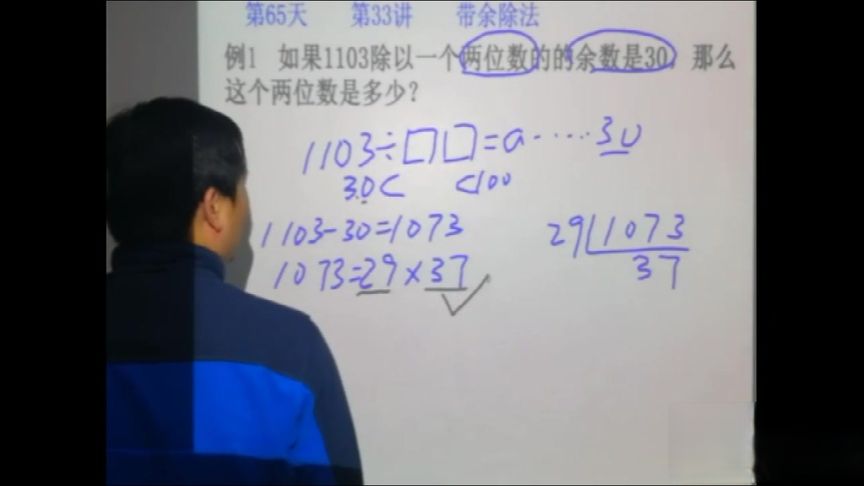 第65天 第33讲 带余除法
例1 如果1103除以一个两位数的的余数是30，那么
这个两位数是多少？
1103÷□□=a·····30
30< <100
1103-30=1073
1073=29×37
29 1073
37